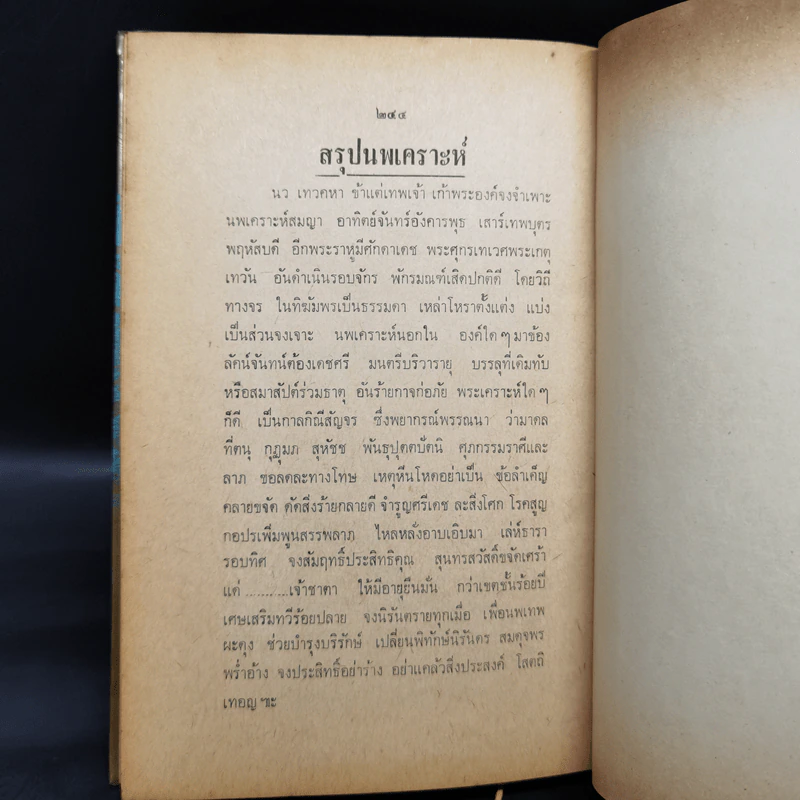 ๒๔๔
สรุปนพเคราะห์
นว เทวคหา ข้าแต่เทพเจ้า เก้าพระองค์จงจำเพาะ
นพเคราะห์สมญา อาทิตย์จันทร์อังคารพุธ เสาร์เทพบุตร
พฤหัสบดี อีกพระราหูมีศักดาเดช พระศุกรเทเวศพระเกตุ
เทวัน อันดำเนินรอบจักร พักรมณฑ์เสิดปกติดี โดยวิถี
ทางจร ในทิฆัมพรเป็นธรรมดา เหล่าโหราตั้งแต่ง แบ่ง
เป็นส่วนจงเจาะ นพเคราะห์นอกใน องค์ใด ๆ มาข้อง
ลัคน์จันทน์ต้องเดชศรี มนตรีบริวารายุ บรรลุที่เดิมทับ
หรือสมาสัปต์ร่วมธาตุ อันร้ายกาจก่อภัย พระเคราะห์ใด ๆ
ก็ดี เป็นกาลกิณีสัญจร ซึ่งพยากรณ์พรรณนา ว่ามาดล
ที่ตนุ กุฎุมภ สุหัชช พันธุปุตตบัตนิ ศุภกรรมราศีและ
ลาภ ขอลดละทางโทษ เหตุหีนโหดอย่าเป็น ข้อลำเค็ญ
คลายขจัด ตัดสิ่งร้ายกลายดี จำรูญศรีเดช ละสิ่งโศก โรคสูญ
กอปรเพิ่มพูนสรรพลาภ ไหลหลั่งอาบเอิบมา เล่ห์ธารา
รอบทิศ จงสัมฤทธิ์ประสิทธิคุณ สุนทรสวัสดิ์ขจัดเศร้า
แด่ ...........เจ้าชาตา ให้มีอายุยืนมั่น กว่าเขตชั้นร้อยปี
เศษเสริมทวีร้อยปลาย จงนิรันตรายทุกเมื่อ เพื่อนพเทพ
ผะดุง ช่วยบำรุงบริรักษ์ เปลี่ยนพิทักษ์นิรันดร สมดุจพร
พร่ำอ้าง จงประสิทธิ์อย่าร้าง อย่าแคล้วสิ่งประสงค์ โสตถิ
เทอญ ฯะ